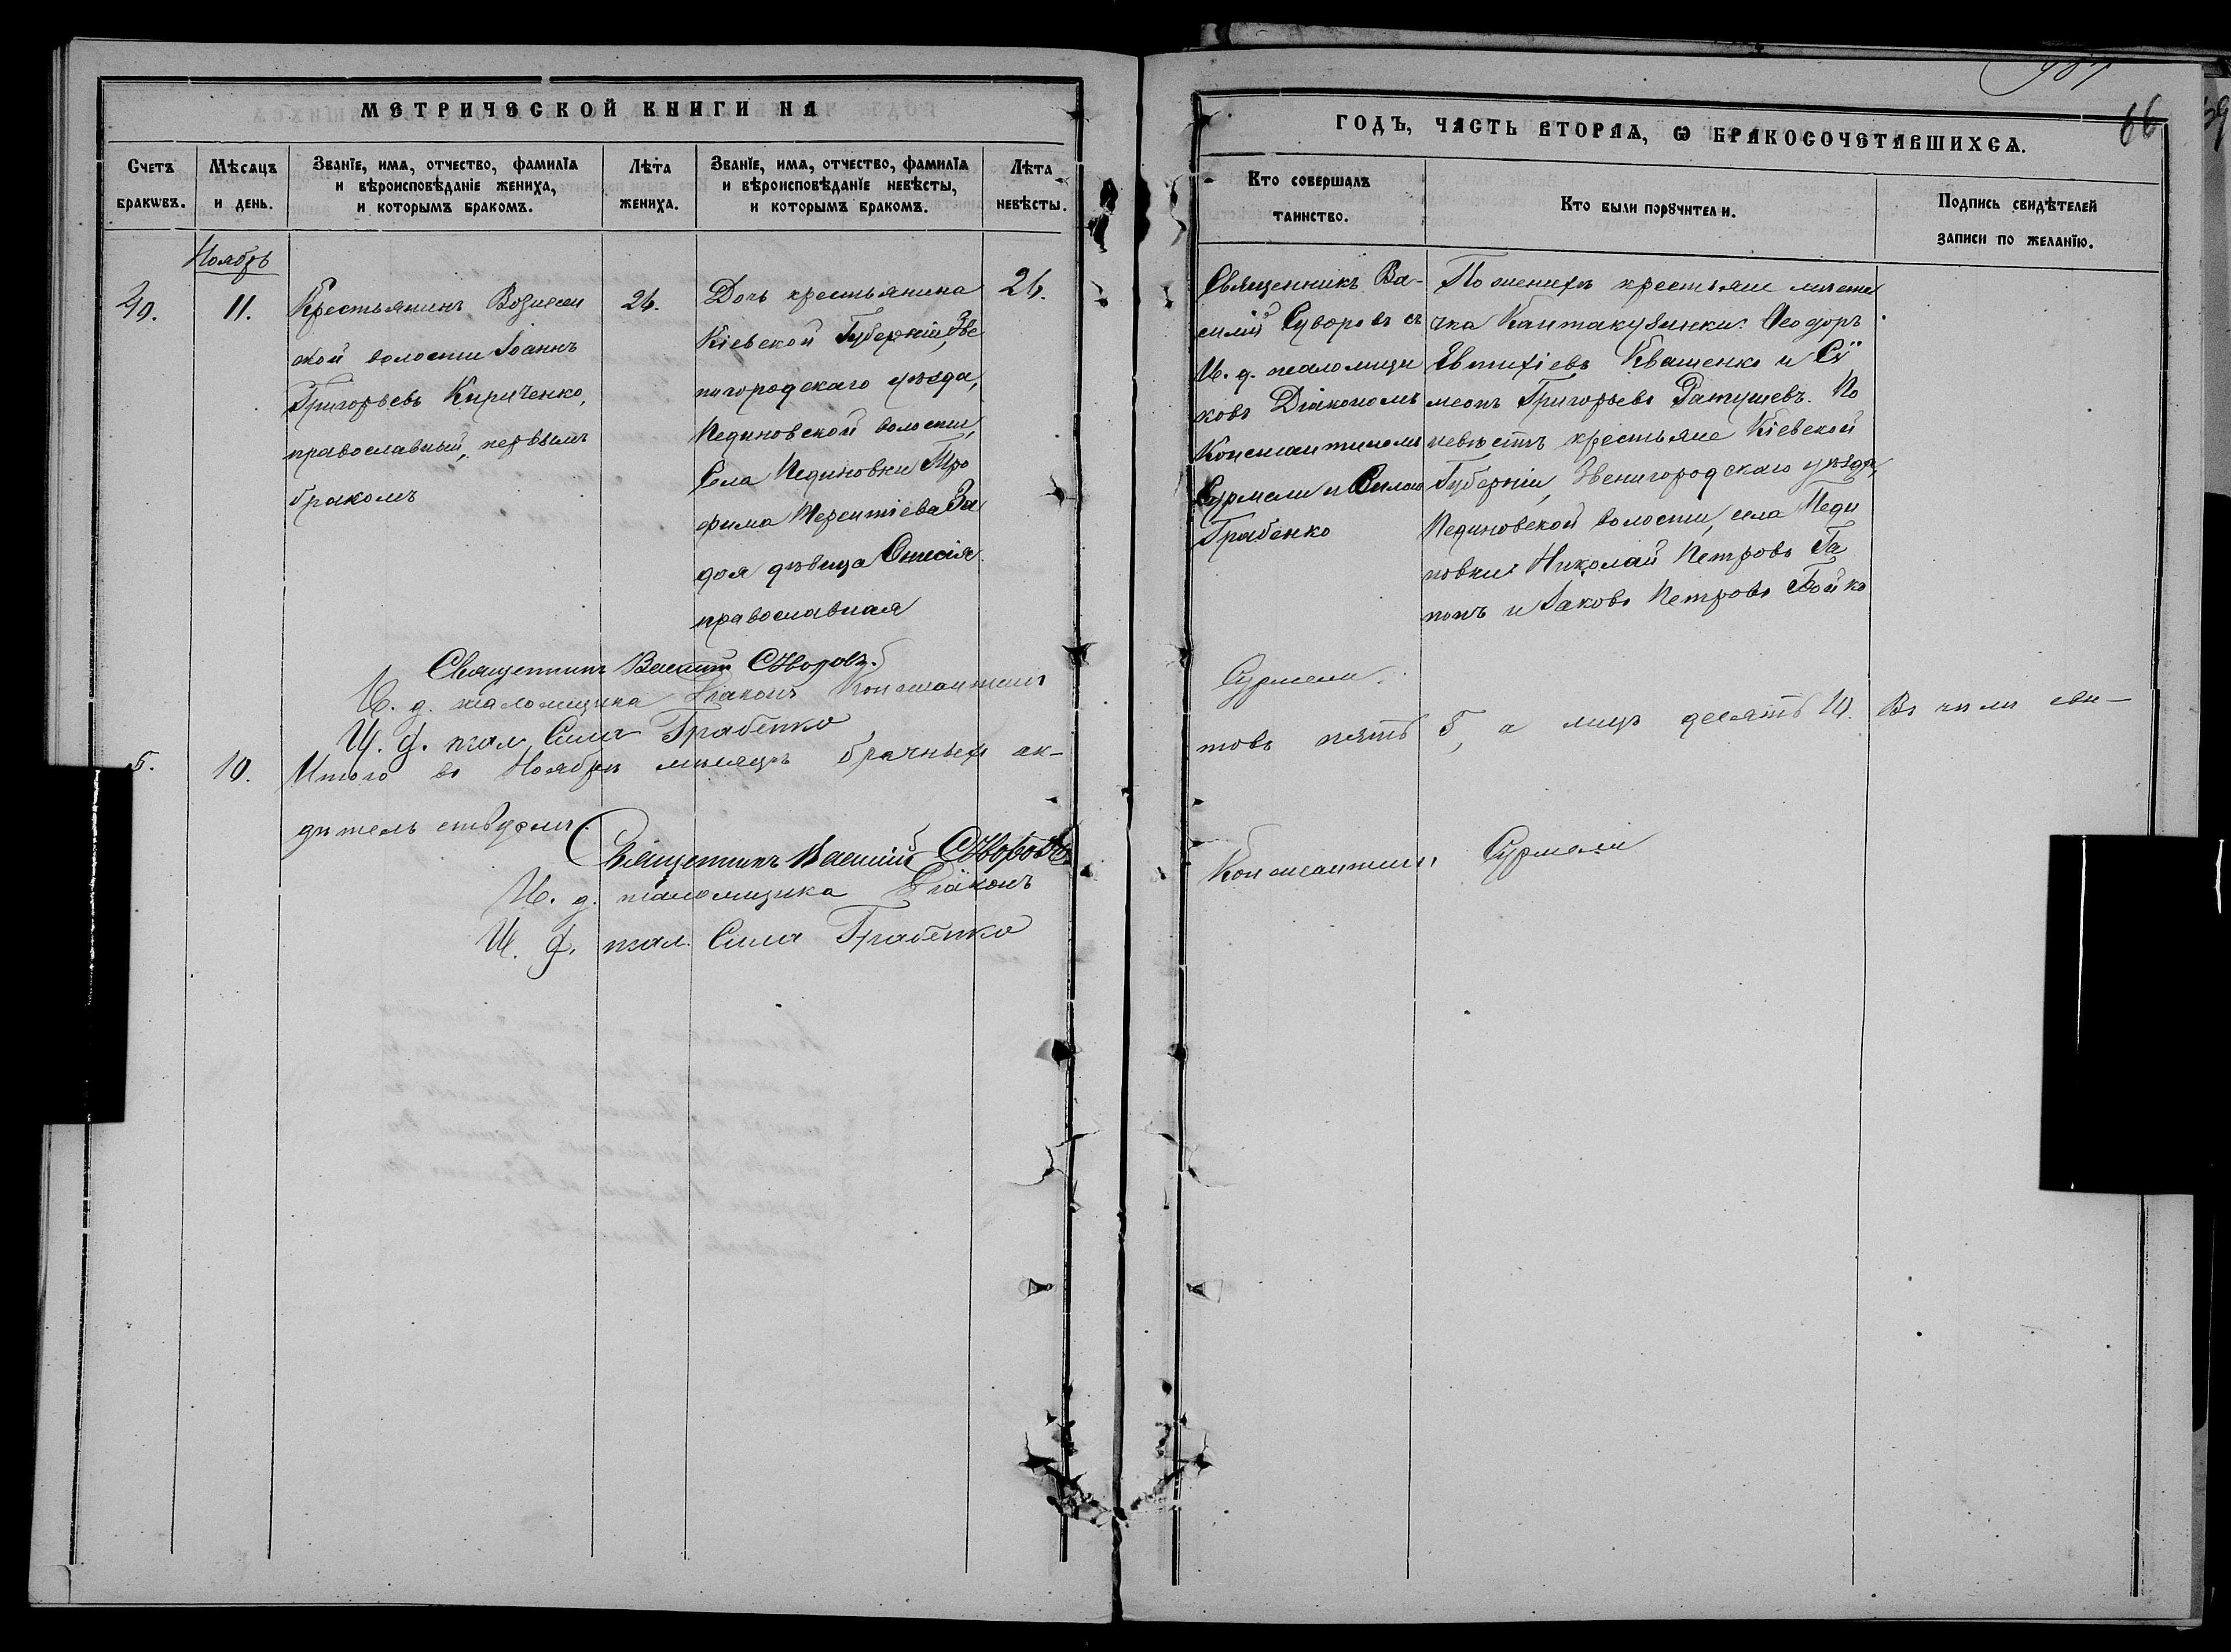 МЕТРИЧЕСКОЙ КНИГИ НА
Счетъ браковъ.
Мѣсяцъ и день.
Званїе, имя, отчество, фамилїя
и вѣроисповѣданїе жениха,
и которымъ бракомъ.
Лѣта
жениха.
Званїе, имя, отчество, фамилїя
и вѣроисповѣданїе невѣсты,
и которымъ бракомъ.
Лѣта
невѣсты.
Ноябрь
11.
Крестьянинъ Вознесен
ской волости Іоаннъ
Григорьевъ Кириченко,
православный, первымъ
бракомъ
26.
Дочь крестьянина
Кіевской Губерніи, Зве
нигородскаго уѣзда,
Пединовской волости,
Села Пединовки Тро
фима Терентіева За
доя дѣвица Онисія
православная
26.
Священникъ Василій Сѵворовъ.
И. д. псаломщика Діаконъ Константинъ
И. д. псал. Сила Грабенко
5.
10.
Итого въ Ноябрѣ мѣсяцѣ брачныхъ ак-
дѣтельствуемъ:
Священникъ Василій Сѵворовъ
И. д. псаломщика Діаконъ
И. д. псал. Сила Грабенко
66
ГОДЪ, ЧАСТЬ ВТОРАЯ, Ѡ БРАКОСОЧЕТАВШИХСЯ.
Кто совершалъ
таинство.
Кто были порꙋчители.
Подпись свидѣтелей
записи по желанїю.
Священникъ Ва-
силій Суворовъ съ
И. д. псаломщи
ковъ Діакономъ
Константиномъ
Сурмели и Силою
Грабенко
По женихѣ крестьяне мѣсте
чка Кантакузинки: Ѳеодоръ
Евтихіевъ Квашенко и Сѵ
меонъ Григорьевъ Ратушевъ. По
невѣстѣ крестьяне Кіевской
Губерніи, Звенигородскаго уѣзда,
Пединовской волости, села Педи
новки: Николай Петровъ Га
понъ и Іаковъ Петровъ Бойко
Сурмели.
товъ пять 5, а лицъ десять 10. Въ чемъ сви-
Константинъ Сурмели